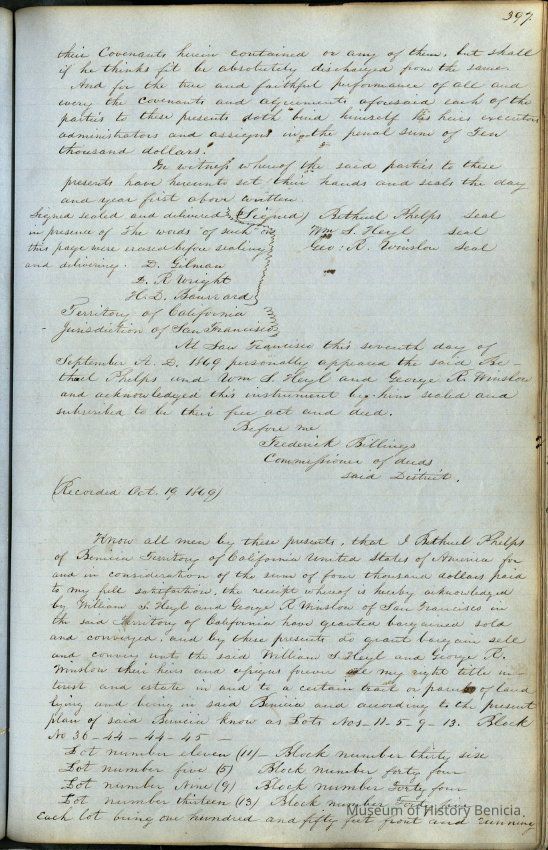 397.
their Covenants herein contained or any of them, but shall
if he thinks fit be absolutely discharged from the same.
And for the true and faithful performance of all and
every the Covenants and agreements aforesaid each of the
parties to these presents doth bind himself his heirs executors
administrators and assigns in the penal sum of Ten
thousand dollars.
In witness whereof the said parties to these
presents have hereunto set their hands and seals the day
and year first above written.
Signed sealed and delivered (Signed) Bethuel Phelps Seal
in presence of The words "of such" on Wm S. Heyl seal
this page were erased before sealing Geo: R. Winslow Seal
and delivering. D. Gilman
D. R Wright
H. D.
Territory of California
Jurisdiction of San Francisco
At San Francisco this seventh day of
September A. D. 1869 personally appeared the said Be-
thuel Phelps and Wm S. Heyl and George R. Winslow
and acknowledged this instrument by him sealed and
subscribed to be their free act and deed.
Before me
Frederick Billings
Commissioner of deeds
said District.
(Recorded Oct. 19 1869)
Know all men by these presents, that I Bethuel Phelps
of Benicia Territory of California United States of America for
and in consideration of the sum of four thousand dollars paid
to my full satisfaction, the receipt whereof is hereby acknowledged
by William S. Heyl and George R Winslow of San Francisco in
the said Territory of California have granted bargained sold
and conveyed, and by these presents do grant bargain sell
and convey unto the said William S. Heyl and George R.
Winslow their heirs and assigns forever all my right title in-
terest and estate in and to a certain tract or parcel of land
lying and being in said Benicia and according to the present
plan of said Benicia know as Lots Nos- 11- 5- 9- 13. Block
No 36-44-44-45-
Lot number eleven (11) - Block number thirty six
Lot number five (5) Block number forty four
Lot number Nine (9) Block number Forty four
Lot number thirteen (13) Block number
each lot being one hundred and fifty feet front and running
Museum of History Benicia